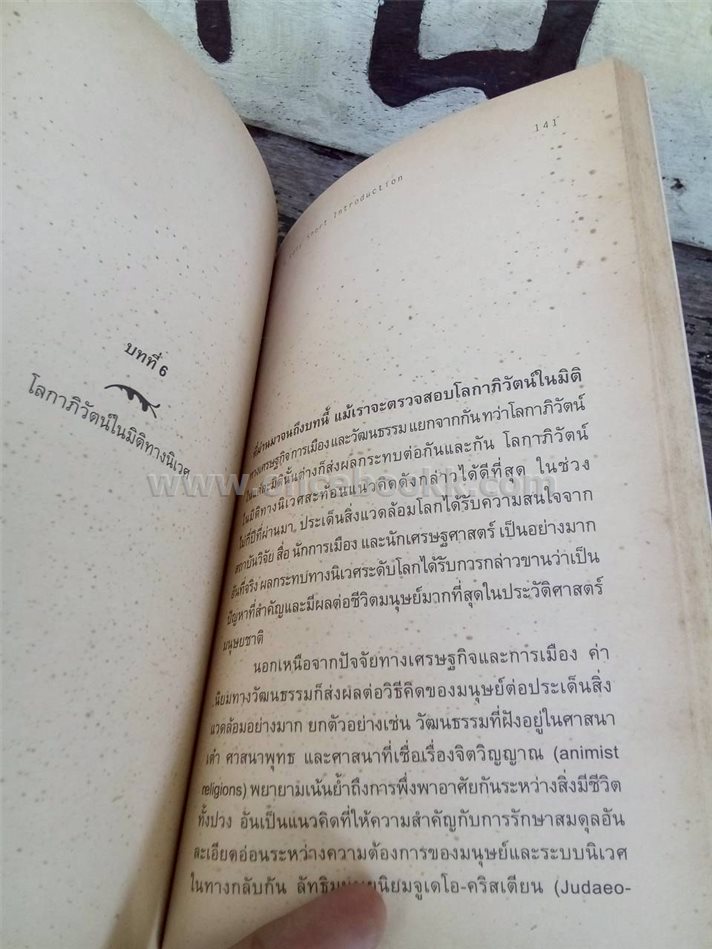 บทที่ 6
โลกาภิวัตน์ในมิติทางนิเวศ
141
Very Short Introduction
ที่ผ่านมาจนถึงบทนี้ แม้เราจะตรวจสอบโลกาภิวัตน์ในมิติ
ทางเศรษฐกิจ การเมือง และวัฒนธรรม แยกจากกัน ทว่าโลกาภิวัตน์
แต่ละ มิตินั้นต่างก็ส่งผลกระทบต่อกันและกัน โลกาภิวัตน์
ในมิติทางนิเวศสะท้อนแนวคิดดังกล่าวได้ดีที่สุด ในช่วง
ไม่กี่ปีที่ผ่านมา ประเด็นสิ่งแวดล้อมโลกได้รับความสนใจจาก
สถาบันวิจัย สื่อ นักการเมือง และนักเศรษฐศาสตร์ เป็นอย่างมาก
อันที่จริง ผลกระทบทางนิเวศระดับโลกได้รับการกล่าวขานว่าเป็น
ปัญหาที่สำคัญและมีผลต่อชีวิตมนุษย์มากที่สุดในประวัติศาสตร์
มนุษยชาติ
นอกเหนือจากปัจจัยทางเศรษฐกิจและการเมือง ค่า
นิยมทางวัฒนธรรมก็ส่งผลต่อวิธีคิดของมนุษย์ต่อประเด็นสิ่ง
แวดล้อมอย่างมาก ยกตัวอย่างเช่น วัฒนธรรมที่ฝังอยู่ในศาสนา
เต๋า ศาสนาพุทธ และศาสนาที่เชื่อเรื่องจิตวิญญาณ (animist
religions) พยายามเน้นย้ำถึงการพึ่งพาอาศัยกันระหว่างสิ่งมีชีวิต
ทั้งปวง อันเป็นแนวคิดที่ให้ความสำคัญกับการรักษาสมดุลอัน
ละเอียดอ่อนระหว่างความต้องการของมนุษย์และระบบนิเวศ
ในทางกลับกัน จูเดโอ-คริสเตียน (Judaeo-